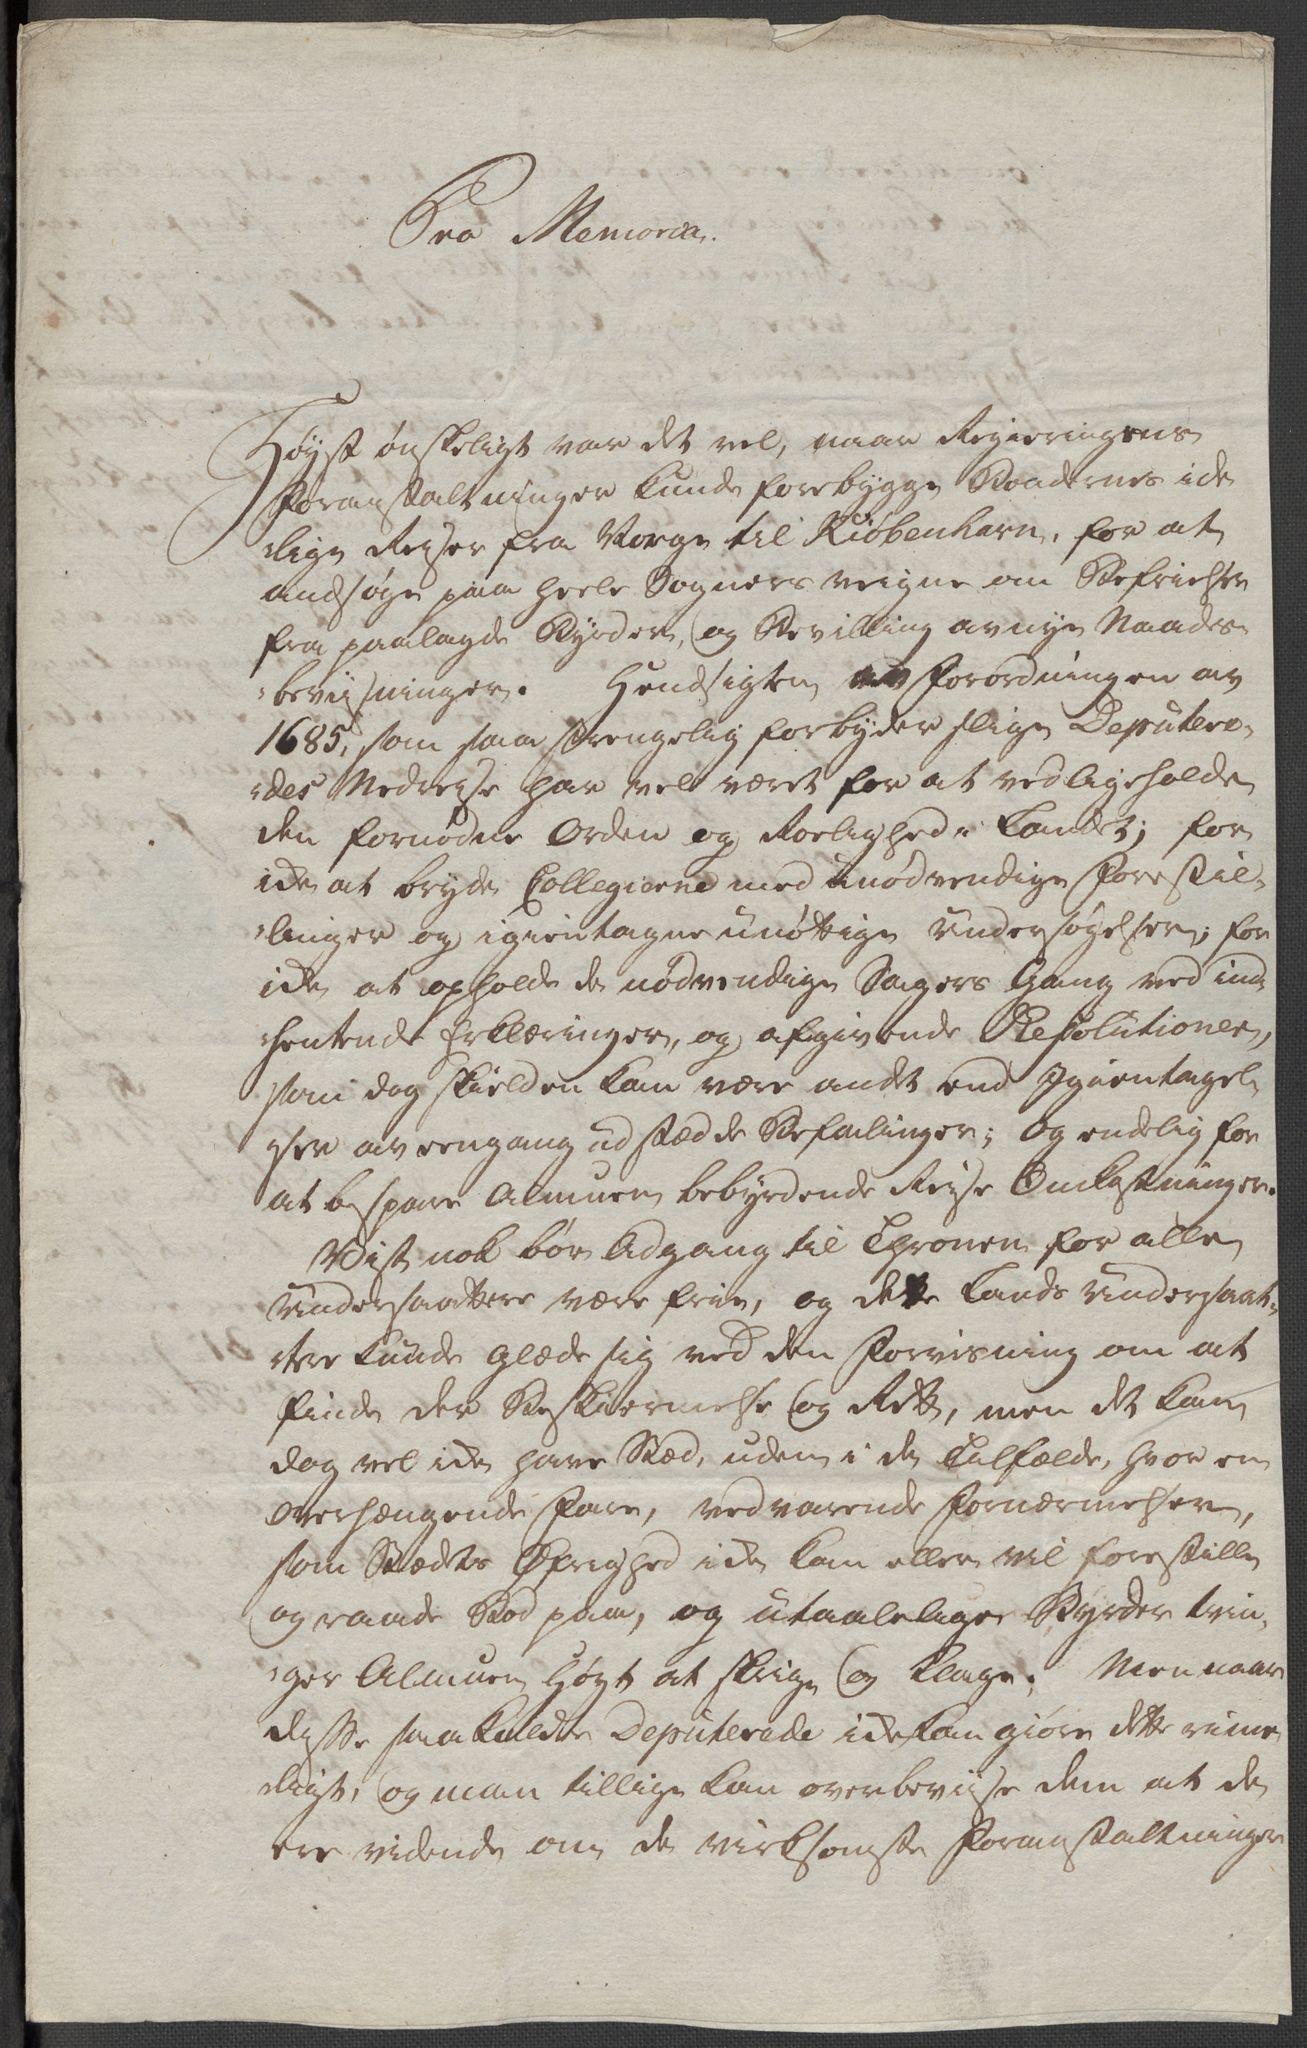 Pro Memoria.
Høyst ønskeligt var det vel, naar Regieringens
Foranstaltninger kunde forebygge Bondernes ide
lige Reiser fra Norge til Kiøbenhavn, for at
andsøge paa heele Sogners veigne om Befrielser
fra paalagde Byrder, og Bevilling av nye Naades
beviisninger. Hensigten av Forordningen av
1685, som saa strengelig forbyder slige Deputere-
des Nedreyse har vel været for at vedligeholde
den fornødne Orden og Roelighed i Landet; for
ikke at bryde Collegierne med unødvendige Forestil-
linger og igientagne unøttige Undersøgelser; for
ikke at opholde de nødvendige Sagers Gang ved ind
hentende Erklæringer, og afgivende Resolutioner,
som dog skielden kan være andet end Igientagel
ser av eengang udstædde Befalinger; og endelig for
at bespare Almuen bebyrdende Reise Omkostninger.
Vist nok bør Adgang til Thronen for alle
Undersaattere være frie, og dette Lands Undersaat-
tere kunde glæde sig ved den Forvisning om at
finde der Beskiermelse og Rett, men det kan
dog vel ikke have Stæd, uden i de Tilfælde, hvor en
overhængende Fare, vedvarende Fornærmelser,
som Stædets Øfrighed ikke kan eller vil forestille
og raade Bod paa, og utaalelige Byrder tvin-
ger Almuen høyt at skrige og klage. Men naar
disse saa kaldte Deputerede ikke kan giøre dette rime
ligt, og man tillige kan overbeviise dem at de
ere vidende om de virksomste Foranstaltninger